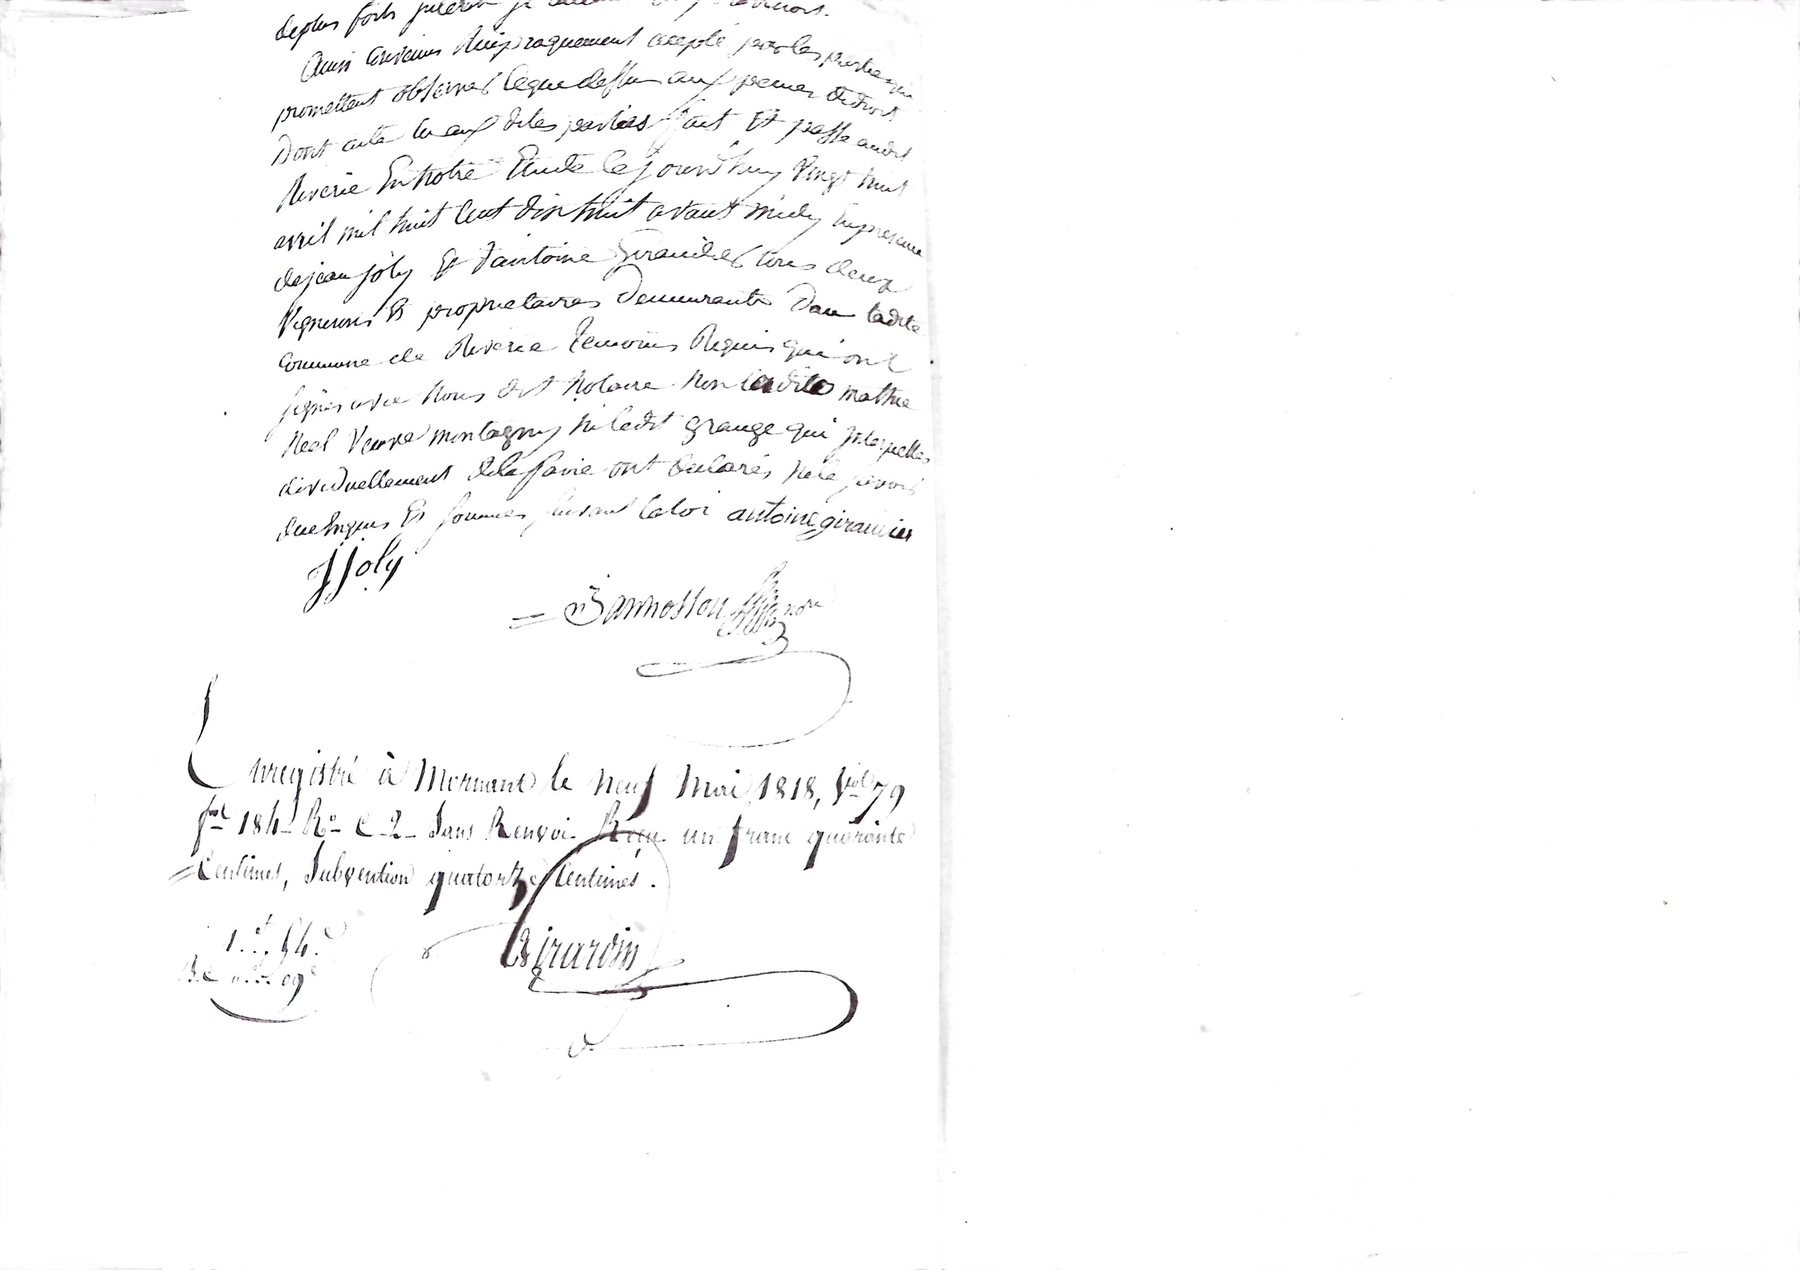 de plus forts
Ainsi convenu Reciproquement accepté par les parties qui
promettent observer ce que dessus aux peines de droit
Dont acte lu aux dites parties fait Et passé audit
Riverie En notre Etude Cejourd'huy vingt huit
avril mil huit Cent dix huit avant midy En presence
de jean joly Et d'antoine giraudier tous deux
Vignerons Et proprietaires Demeurants Dans ladite
Commune de Riverie temoins Requis qui ont
signés avec Nous dit Notaire Non ladite
Real Veuve montagny ni ledit grange qui jnterpellés
dividuellement de le faire ont declarés ne le savoir
de Enquis Et sommés suivant la loi antoine giraudier
j joly
= Bannosson nore
Enregistré à Mornant le neuf Mai 1818, Vol 79
fol 184 Ro C 2 Sans Renvoi Reçu un franc quarante
=Centimes, Subvention quatorze Centimes.
1.f 54.c
09c
Girardin